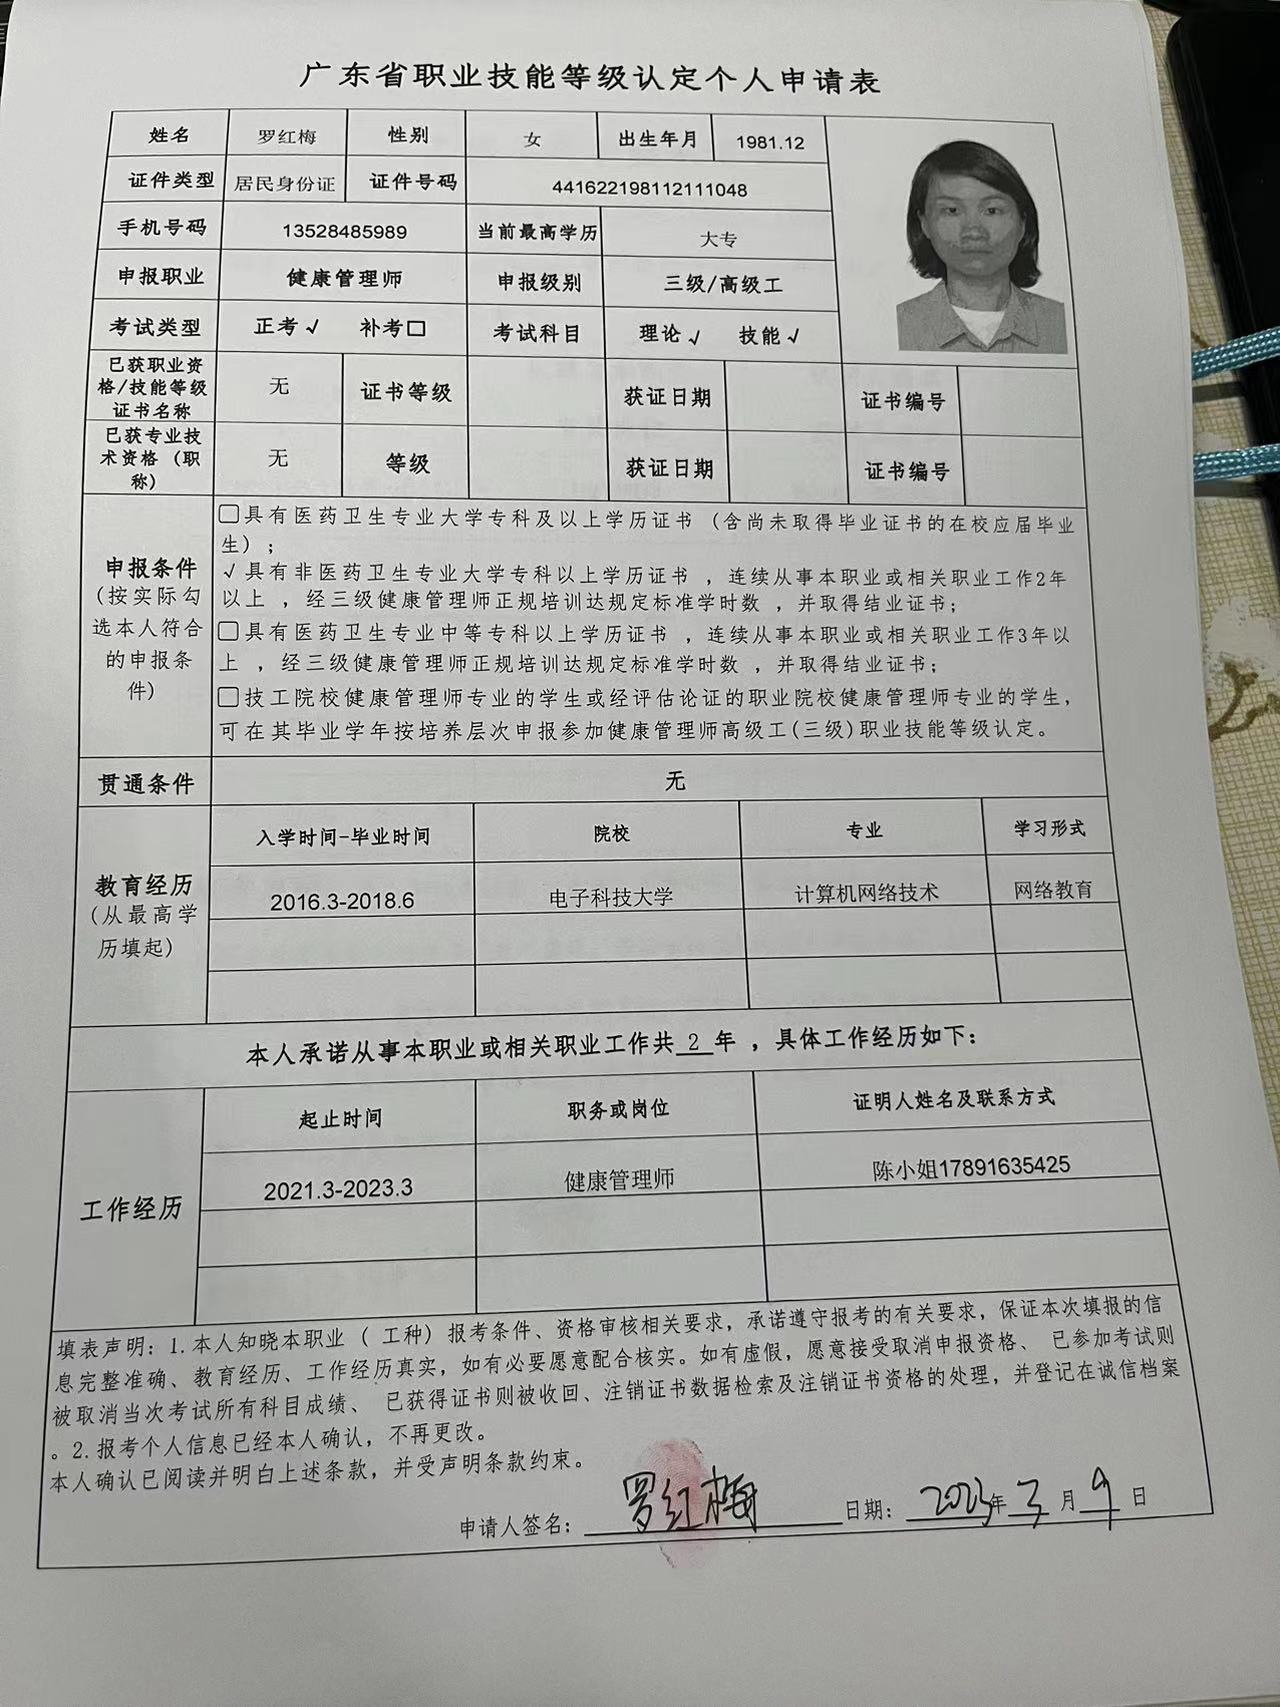 广东省职业技能等级认定个人申请表
姓名 罗红梅 性别 女 出生年月 1981.12
证件类型 居民身份证 证件号码 441622198112111048
手机号码 13528485989 当前最高学历 大专
申报职业 健康管理师 申报级别 三级/高级工
考试类型 正考√ 补考□ 考试科目 理论√ 技能√
已获职业资
格/技能等级
证书名称
无 证书等级 获证日期 证书编号
已获专业技
术资格（职
称）
无 等级 获证日期 证书编号
申报条件
(按实际勾
选本人符合
的申报条
件)
□具有医药卫生专业大学专科及以上学历证书（含尚未取得毕业证书的在校应届毕业
生）；
√具有非医药卫生专业大学专科以上学历证书，连续从事本职业或相关职业工作2年
以上，经三级健康管理师正规培训达规定标准学时数，并取得结业证书；
□具有医药卫生专业中等专科以上学历证书，连续从事本职业或相关职业工作3年以
上，经三级健康管理师正规培训达规定标准学时数，并取得结业证书；
□技工院校健康管理师专业的学生或经评估论证的职业院校健康管理师专业的学生，
可在其毕业学年按培养层次申报参加健康管理师高级工(三级)职业技能等级认定。
贯通条件 无
教育经历
(从最高学
历填起)
入学时间-毕业时间 院校 专业 学习形式
2016.3-2018.6 电子科技大学 计算机网络技术 网络教育
本人承诺从事本职业或相关职业工作共 2 年，具体工作经历如下：
工作经历
起止时间 职务或岗位 证明人姓名及联系方式
2021.3-2023.3 健康管理师 陈小姐17891635425
填表声明：1.本人知晓本职业（工种）报考条件、资格审核相关要求，承诺遵守报考的有关要求，保证本次填报的信
息完整准确、教育经历、工作经历真实，如有必要愿意配合核实。如有虚假，愿意接受取消申报资格、已参加考试则
被取消当次考试所有科目成绩、已获得证书则被收回、注销证书数据检索及注销证书资格的处理，并登记在诚信档案
。2.报考个人信息已经本人确认，不再更改。
本人确认已阅读并明白上述条款，并受声明条款约束。
申请人签名：罗红梅 日期：2023年3月9日